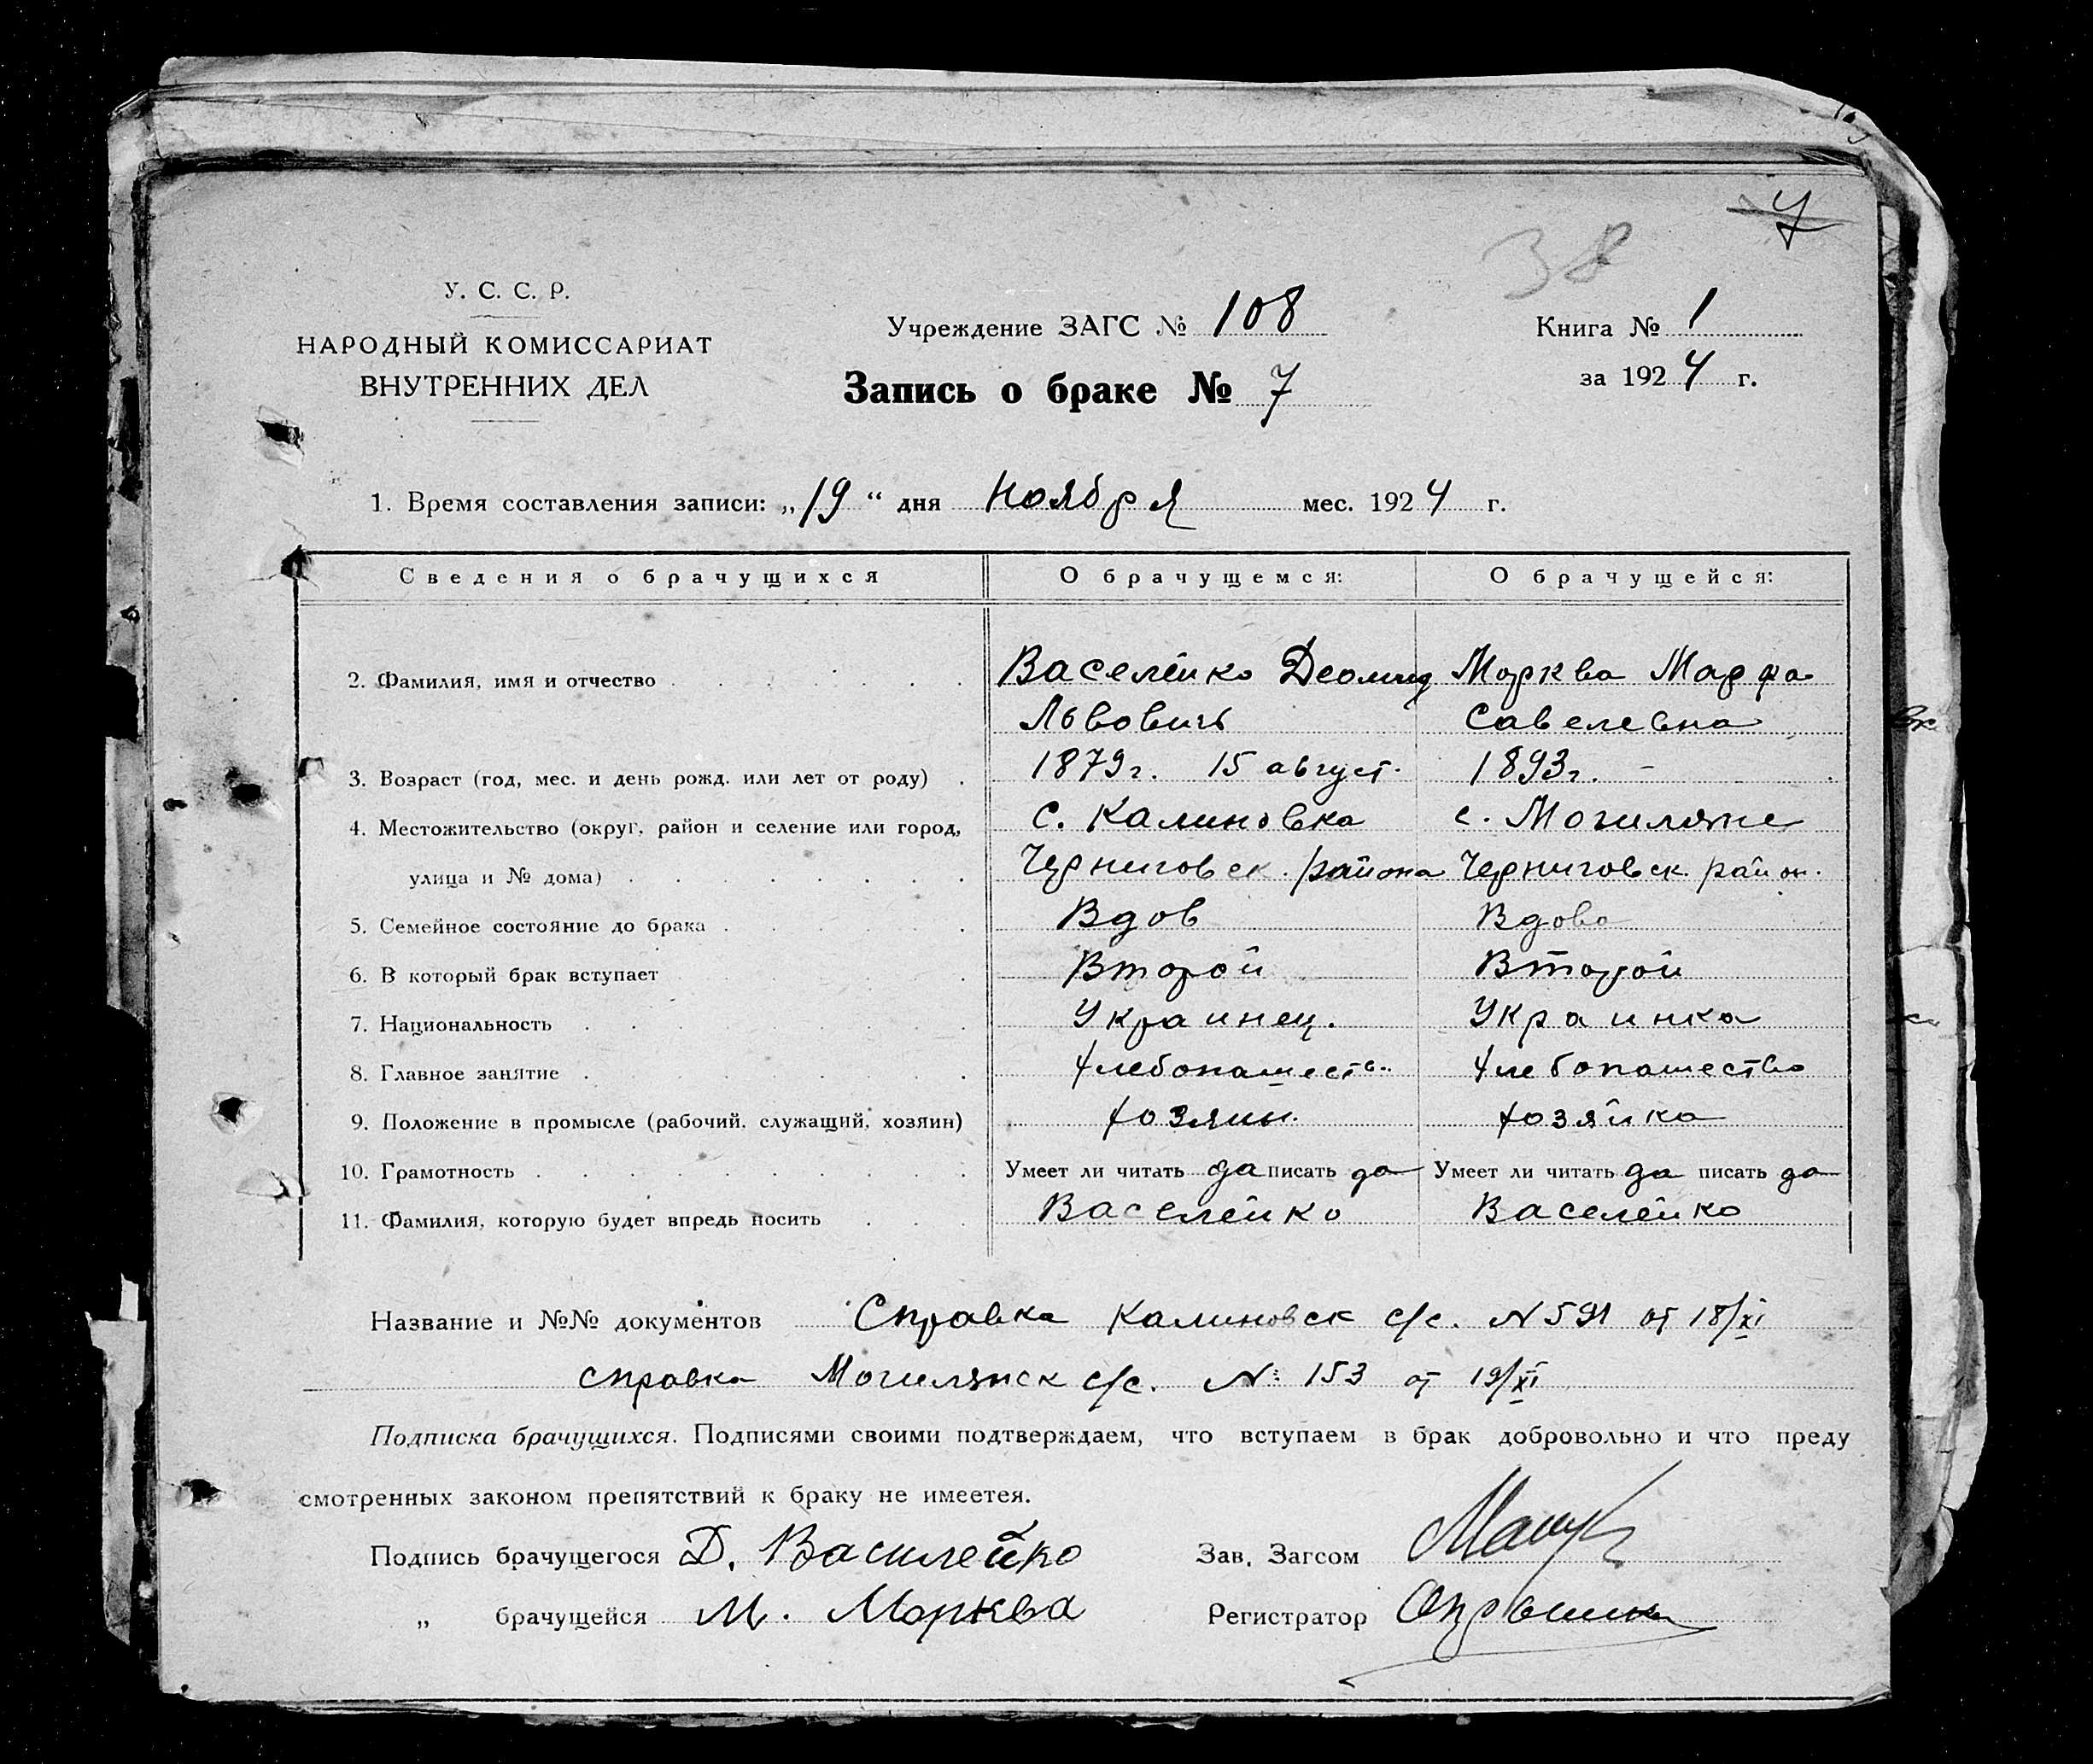 7
38
У. С. С. Р.
НАРОДНЫЙ КОМИССАРИАТ
ВНУТРЕННИХ ДЕЛ
Учреждение ЗАГС № 108
Запись о браке № 7
Книга № 1
за 1924 г.
1. Время составления записи: „19“ дня Ноября мес. 1924 г.
Сведения о брачущихся О брачущемся: О брачущейся:
2. Фамилия, имя и отчество Васелейко Деомид Морква Марфа
Львовичь Савелевна
3. Возраст (год, мес. и день рожд. или лет от роду) 1879г. 15 август. 1893г. -
4. Местожительство (округ, район и селение или город, с. Калиновка с. Могиляне
улица и № дома) Черниговск. района Черниговск. район.
5. Семейное состояние до брака Вдов Вдова
6. В который брак вступает Второй Второй
7. Национальность Украинец. Украинка
8. Главное занятие Хлебопашеств. Хлебопашество
9. Положение в промысле (рабочий, служащий, хозяин) хозяин. хозяйка
10. Грамотность Умеет ли читать да писать да Умеет ли читать да писать да
11. Фамилия, которую будет впредь носить Васелейко Васелейко
Название и №№ документов Справка Калиновск с/с. N 591 от 18/XI
справка Могилянск с/с. N: 153 от 19/XI
Подписка брачущихся. Подписями своими подтверждаем, что вступаем в брак добровольно и что преду
смотренных законом препятствий к браку не имеетея.
Подпись брачущегося Д. Василейко Зав. Загсом
„ брачущейся М. Морква Регистратор